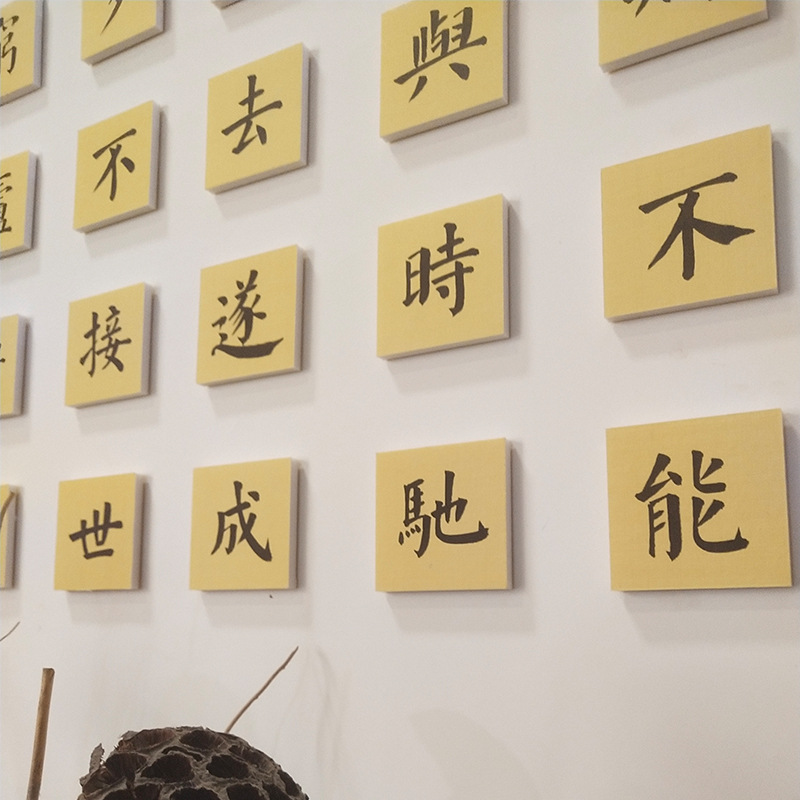 不能
與時馳
去遂成
不接世